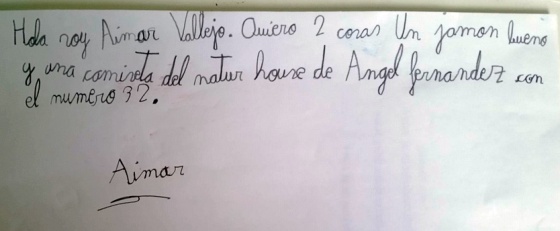 Hola soy Aimar Vallejo. Quiero 2 cosas Un jamon bueno
y una camiseta del natur house de Angel fernandez con
el numero 32.
Aimar